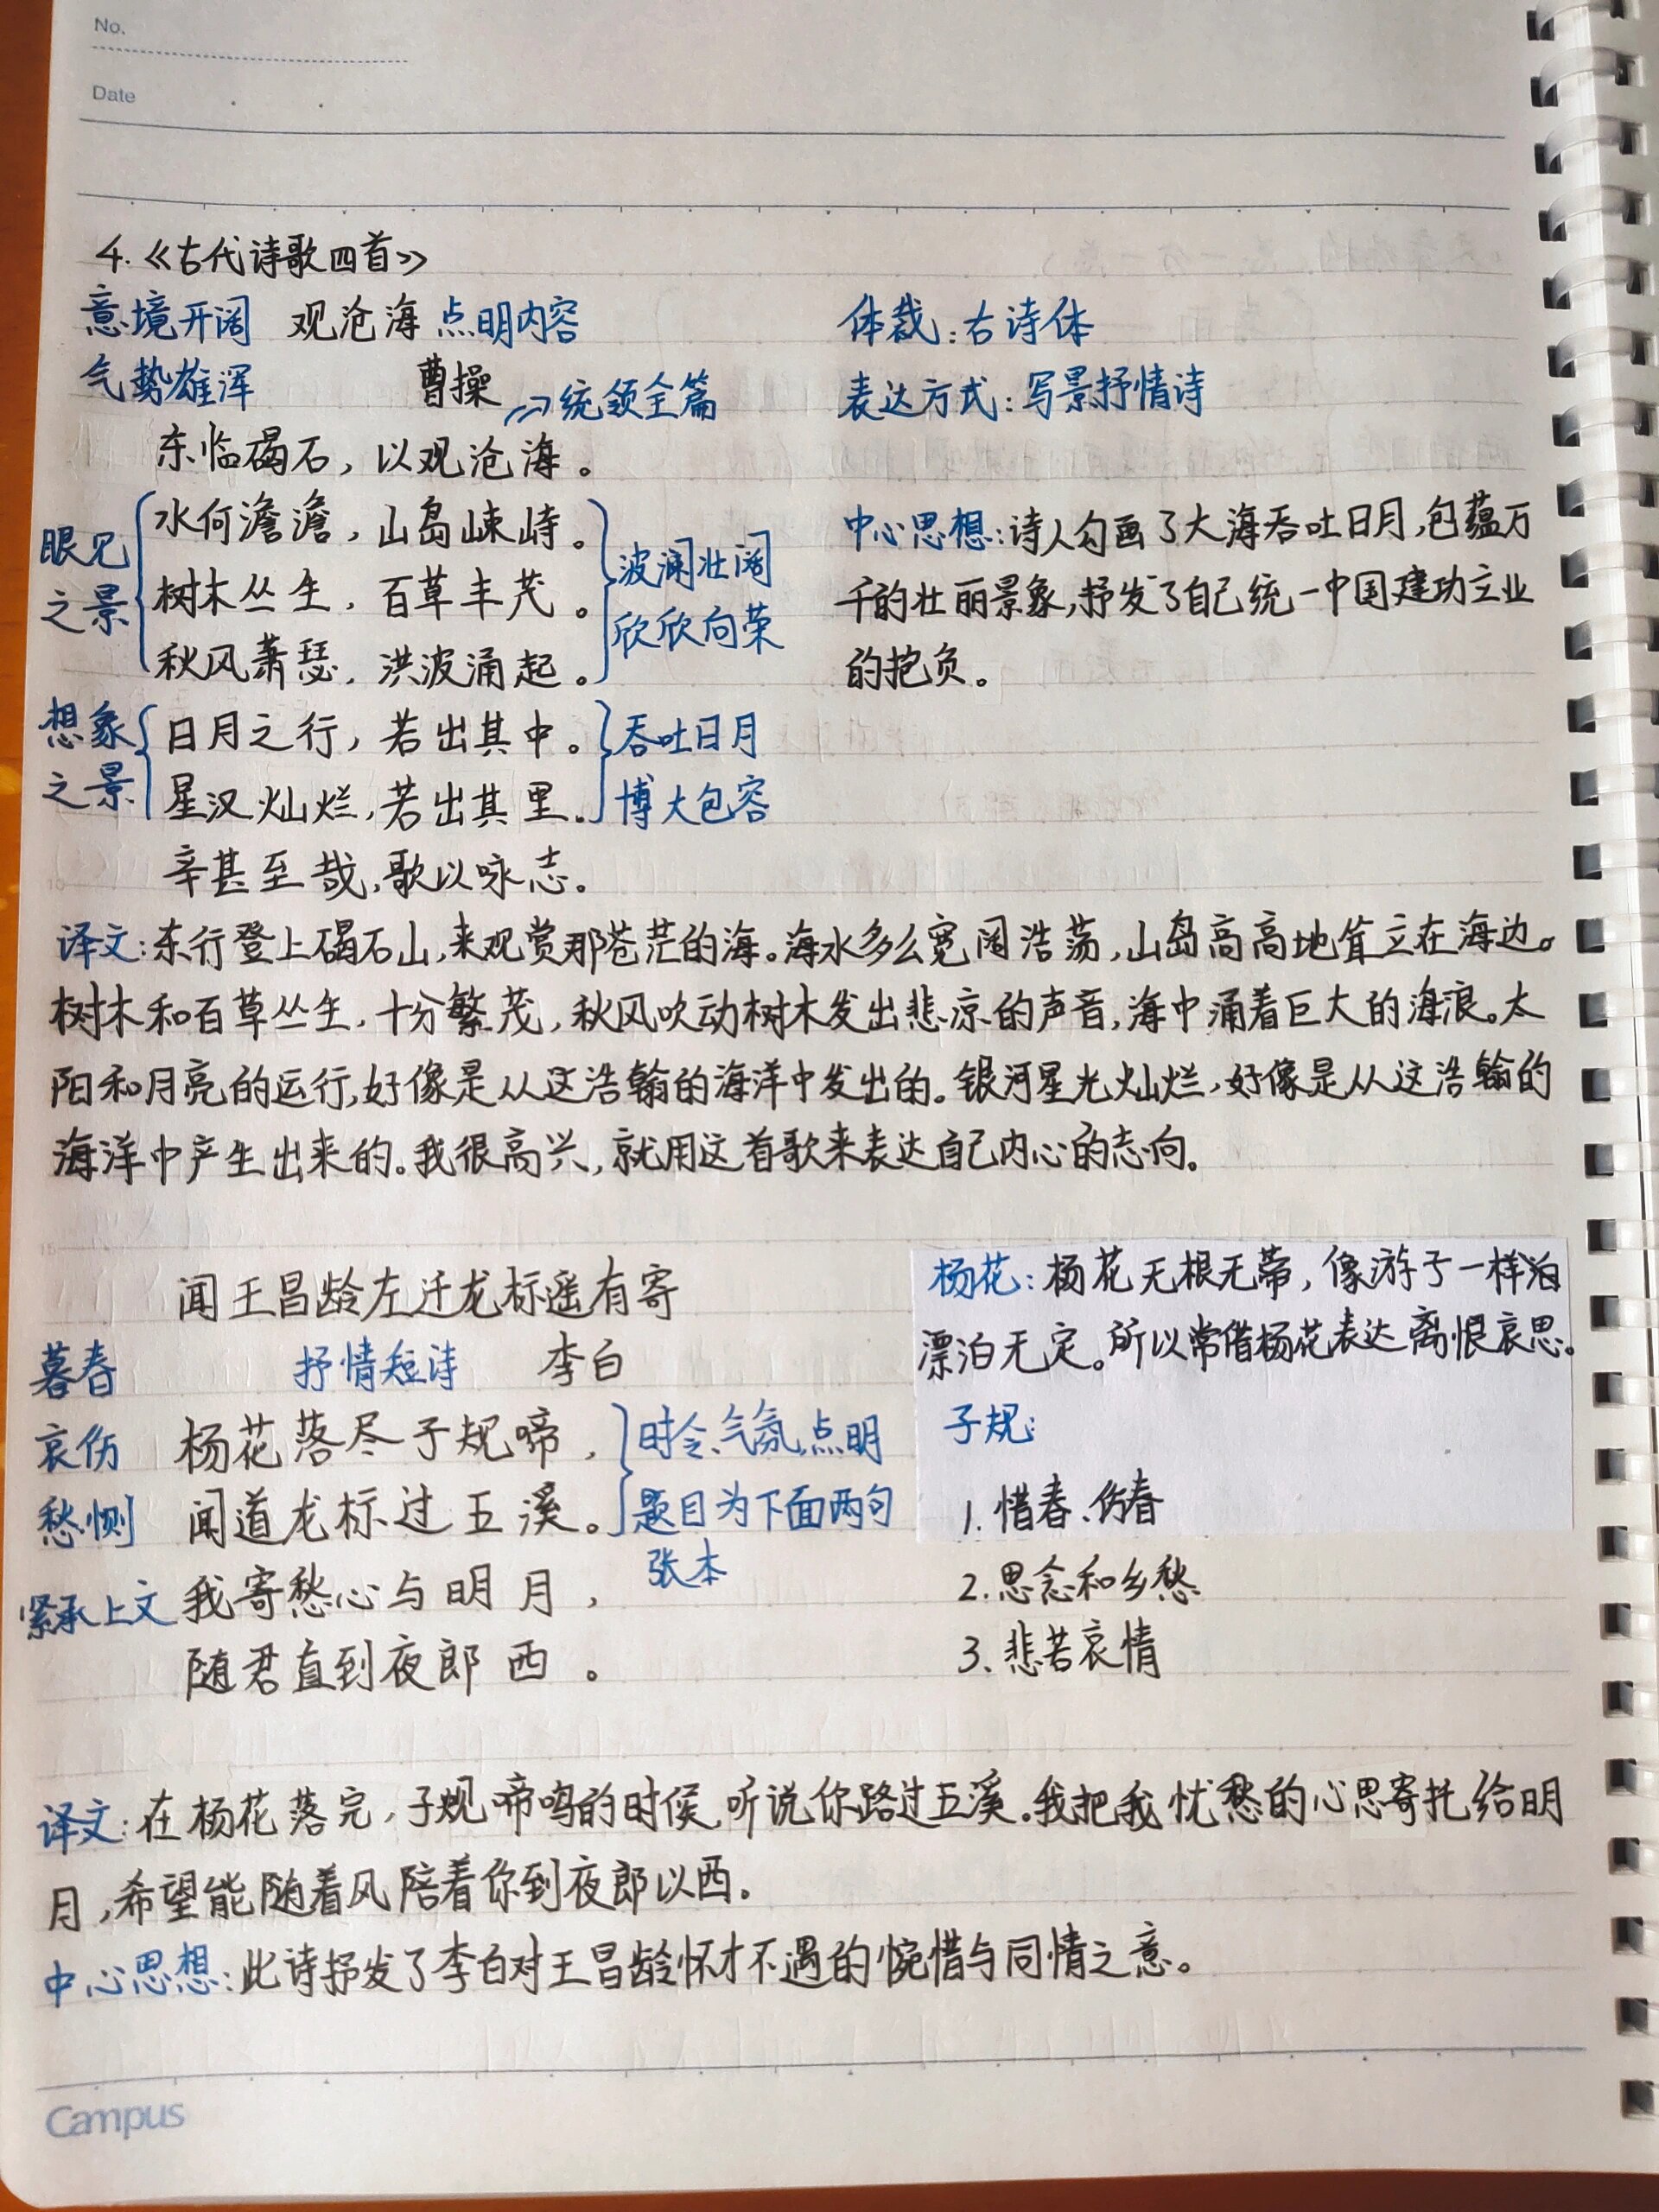 No.
Date
4.《古代诗歌四首》
意境开阔 观沧海 点明内容 体裁:古诗体
气势雄浑 曹操 统领全篇 表达方式:写景抒情诗
东临碣石,以观沧海。
眼见之景 水何澹澹,山岛竦峙。 波澜壮阔 中心思想:诗人勾画了大海吞吐日月,包蕴万
树木丛生,百草丰茂。 欣欣向荣 千的壮丽景象,抒发了自己统一中国建功立业
秋风萧瑟,洪波涌起。 的抱负。
想象之景 日月之行,若出其中。 吞吐日月
星汉灿烂,若出其里。 博大包容
辛甚至哉,歌以咏志。
译文:东行登上碣石山,来观赏那苍茫的海。海水多么宽阔浩荡,山岛高高地耸立在海边。
树木和百草丛生,十分繁茂,秋风吹动树木发出悲凉的声音,海中涌着巨大的海浪。太
阳和月亮的运行,好像是从这浩翰的海洋中发出的。银河星光灿烂,好像是从这浩翰的
海洋中产生出来的。我很高兴,就用这首歌来表达自己内心的志向。
闻王昌龄左迁龙标遥有寄
暮春 抒情短诗 李白
哀伤 杨花落尽子规啼, 时令、气氛,点明
愁恻 闻道龙标过五溪。 题目为下面两句
张本
紧承上文 我寄愁心与明月,
随君直到夜郎西。
杨花:杨花无根无蒂,像游子一样泊
漂泊无定。所以常借杨花表达离恨哀思。
子规:
1.惜春、伤春
2.思念和乡愁
3、悲苦哀情
译文:在杨花落完,子规啼鸣的时候,听说你路过五溪。我把我忧愁的心思寄托给明
月,希望能随着风陪着你到夜郎以西。
中心思想:此诗抒发了李白对王昌龄怀才不遇的惋惜与同情之意。
Campus